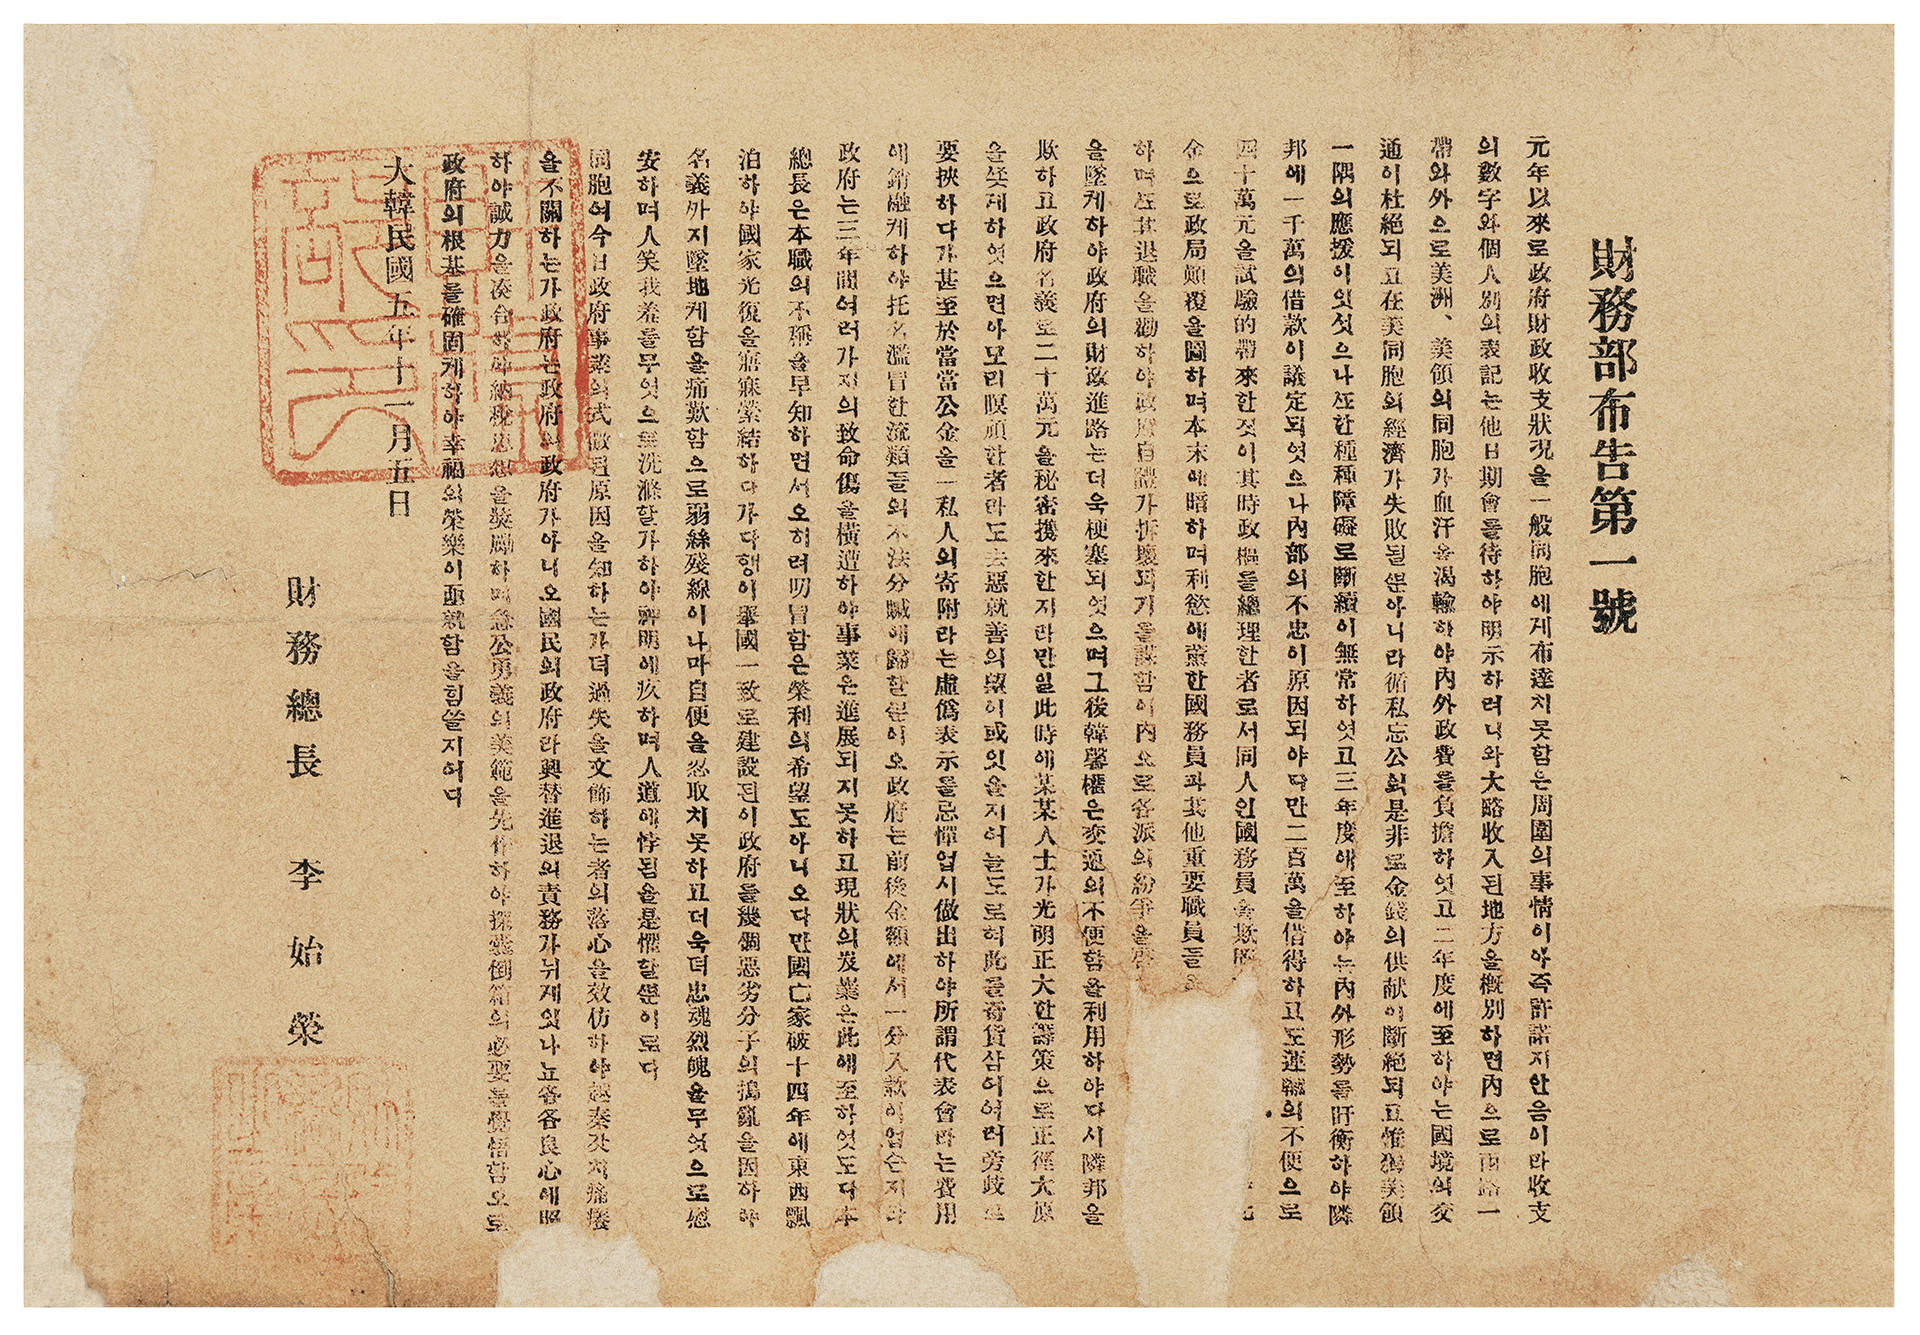 財務部布告第一號
元年以來로政府財政收支狀況을一般同胞에게布達치못함은周圍의事情이아즉許諾지안음이라收支
의數字와個人別의表記는他日期會를待하야明示하려니와大略收入된地方을槪別하면內으로西路一
帶와外으로美洲、美領의同胞가血汗을渴輸하야內外政費를負擔하엿고二年度에至하야는國境의交
通이杜絕되고在美同胞의經濟가失敗될ᄲᅮᆫ아니라循私忘公의是非로金錢의供献이斷絕되고惟獨美領
一隅의應援이잇섯으나ᄯᅩ한種種障礙로斷續이無常하엿고三年度에至하야는內外形勢를盱衡하야隣
邦에一千萬의借款이議定되엿으나內部의不忠이原因되야다만二百萬을借得하고도運輸의不便으로
四十萬元을試驗的帶來한것이其時政樞를總理한者로서同人인國務員을欺
金으로政局顚覆을圖하며本末에暗하며利慾에薰한國務員과其他重要職員들
하며ᄯᅩ其退職을勸하야政府自體가拆壞되기를謀함이內으로各派의紛爭을
을墜케하야政府의財政進路는더욱梗塞되엿으며그後韓馨權은交通의不便함을利用하야다시隣邦을
欺하고政府名義로二十萬元을秘密携來한지라만일此時에某某人士가光明正大한籌策으로正徑大原
을좃게하엿으면아모리瞑頑한者라도去惡就善의望이或잇을지어늘도로혀此를奇貨삼어여러旁歧로
要挾하다가甚至於當當公金을一私人의寄附라는虛僞表示를忌憚업시做出하야所謂代表會라는費用
에銷融케하야托名濫冒한流類들의不法分贓에歸할ᄲᅮᆫ이오政府는前後金額에서一分入款이업슨지라
政府는三年間여러가지의致命傷을橫遭하야事業은進展되지못하고現狀의岌業은此에至하엿도다本
總長은本職의不稱을早知하면서오히려冒함은榮利의希望도아니오다만國亡家破十四年에東西飄
泊하야國家光復을寤寐縈結하다가다행이擧國一致로建設된이政府를幾個惡劣分子의搗亂을因하야
名義外지墜地케함을痛歎함으로弱絲殘線이나마自便을忍取치못하고더욱더忠魂烈魄을무엇으로慰
安하며人笑我羞를무엇으로洗滌할가하야神明에疚하며人道에悖됨을是懼할ᄲᅮᆫ이로다
同胞여今日政府事業의式微된原因을知하는가뎌過失을文飾하는者의落心을效仿하야越秦갓치痛癢
을不關하는가政府는政府의政府가아니오國民의政府라興替進退의責務가뉘게잇나뇨各各良心에照
하야誠力을湊合하야納稅思想을奬勵하며急公勇義의美範을先作하야探囊倒箱의必要를覺悟함으로
政府의根基를確固케하야幸福의榮樂이亟就함을힘쓸지어다
大韓民國五年十一月五日
財務總長 李始榮